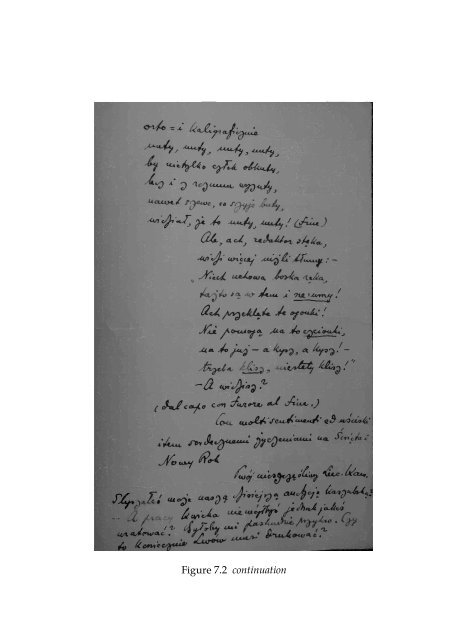 orto = i kaligraficznie
nuty, nuty, nuty, nuty,
by nietylko człek obkuty,
lecz i z rozumu wyzuty,
nawet szewc, co szyje buty,
wiedział, że to nuty, nuty! (fine)
Ale, ach, redaktor stęka,
widzi więcej niźli tłumy: –
„Niech uchowa boska ręka,
toż to są w tem i rozumy!
Ach przeklęte te ogonki!
Nie pomogą na to czcionki,
na to już – a kysz, a kysz! –
trzeba klisz, niestety klisz!"
– A widzisz?
(dal capo con furore al fine.)
Con molti sentimenti ed uściski
item serdecznemi życzeniami na Święta i
Nowy Rok
Twój nieszczęśliwy
Słyszałeś może naszą dzisiejszą audycję
A pracy Kwicka nie mógłbyś jednak jakoś
uratować? Byłoby mi paskudnie przykro. Czy
to koniecznie Lwów musi drukować?
Figure 7.2 continuation